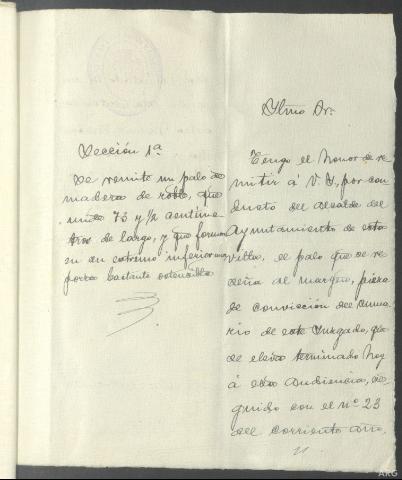 Sección 1ª
Se remite un palo de
madera de roble, que
mide 73 y ½ centíme
tros de largo, y que forma
en su extremo inferior una
porra bastante ostensible
Iltmo Sr.
Tengo el honor de re
mitir á V. I, por con
ducto del Alcalde del
Ayuntamiento de esta
villa, el palo que se re
seña al margen, pieza
de convicción del suma
rio de este Juzgado, que
se eleva terminado hoy
á esa Audiencia, se
guido con el nº 23
del corriente año.
ARG